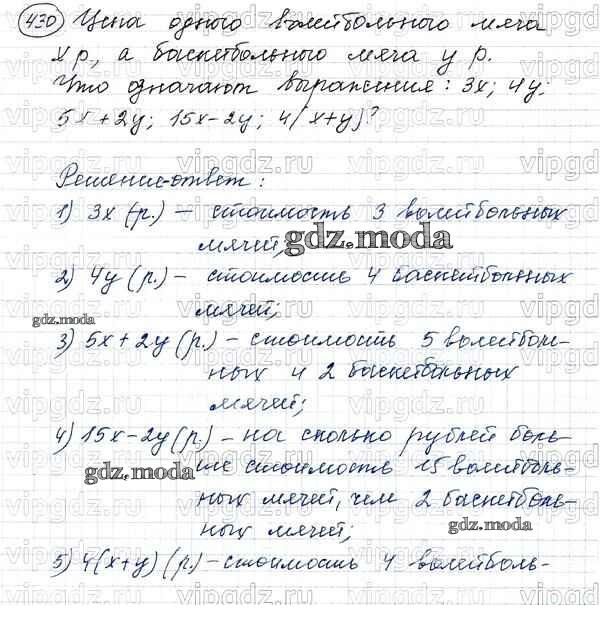 430 Цена одного волейбольного мяча
x р, а баскетбольного мяча y р.
Что означают выражения: 3x; 4y;
5x+2y; 15x-2y; 4(x+y)?
Решение-ответ:
1) 3x (р.) – стоимость 3 волейбольных
мячей;
gdz.moda
2) 4y (р.) – стоимость 4 баскетбольных
мячей;
gdz.moda
3) 5x+2y (р.) – стоимость 5 волейболь-
ных и 2 баскетбольных
мячей;
4) 15x-2y (р.) – на сколько рублей боль-
ше стоимость 15 волейболь-
gdz.moda
ных мячей, чем 2 баскетболь-
ных мячей;
gdz.moda
5) 4(x+y) (р.) – стоимость 4 волейболь-
vipgdz.ru